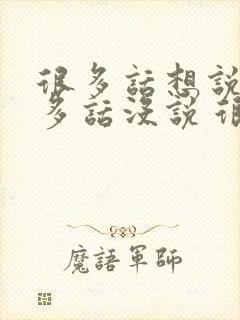 很多話想說
多話沒說 很
魔語軍師